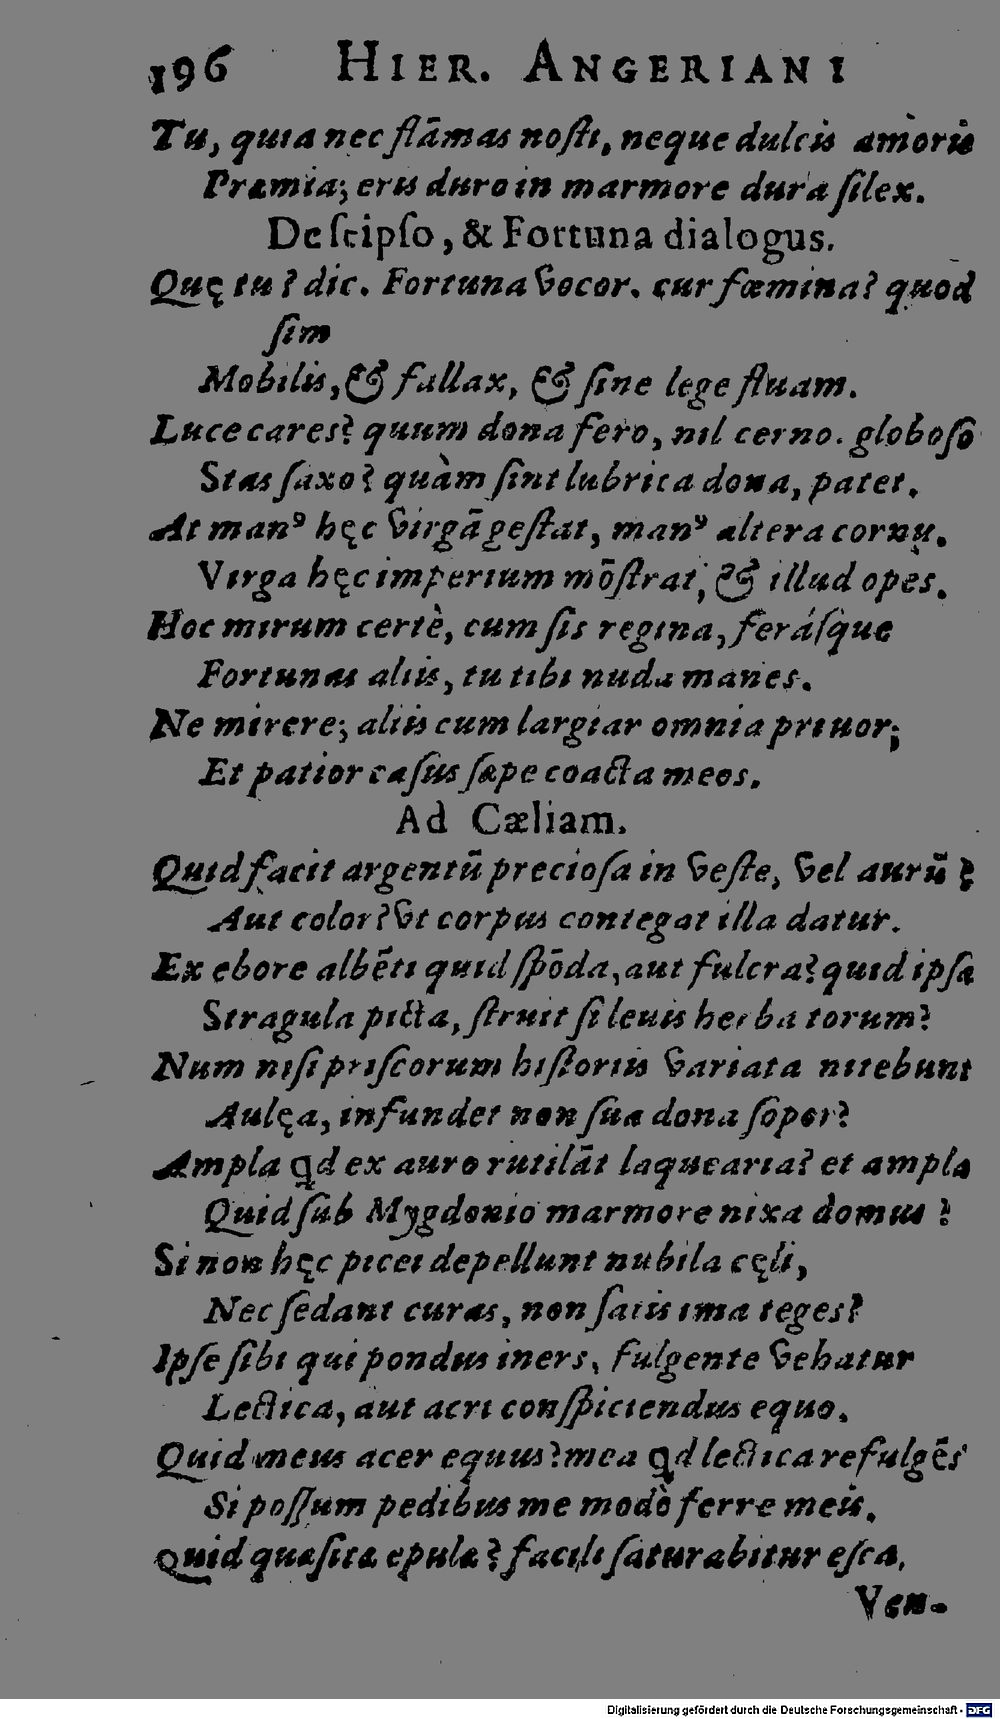 196 HIER. ANGERIANI
Tu, quia nec flāmas nosti, neque dulcis amoris
Præmia; eris duro in marmore dura silex.
De seipso, & Fortuna dialogus.
Quę tu? dic. Fortuna vocor. cur fœmina? quod
sim
Mobilis, & fallax, & sine lege fluam.
Luce cares? quum dona fero, nil cerno. globoso
Stas saxo? quàm sint lubrica dona, patet.
At manꝰ hęc virgā gestat, manꝰ altera cornu.
Virga hęc imperium mōstrat, & illud opes.
Hoc mirum certè, cum sis regina, ferásque
Fortunas aliis, tu tibi nuda manes.
Ne mirere; aliis cum largiar omnia priuor;
Et patior casus sæpe coacta meos.
Ad Cæliam.
Quid facit argentū preciosa in veste, vel aurū?
Aut color? vt corpus contegat illa datur.
Ex ebore albēti quid spōda, aut fulcra? quid ipsa
Stragula picta, struit si leuis herba torum?
Num nisi priscorum historiis variata nitebunt
Aulęa, infundet non sua dona sopor?
Ampla qd ex auro rutilāt laquearia? et ampla
Quid sub Mygdonio marmore nixa domus?
Si non hęc picei depellunt nubila cęli,
Nec sedant curas, non satis ima teges?
Ipse sibi qui pondus iners, fulgente vehatur
Lectica, aut acri conspiciendus equo.
Quid meus acer equus? mea qd lectica refulgēs
Si possum pedibus me modò ferre meis.
Quid quæsita epulæ? facili saturabitur esca,
Ven-
Digitalisierung gefördert durch die Deutsche Forschungsgemeinschaft - DFG